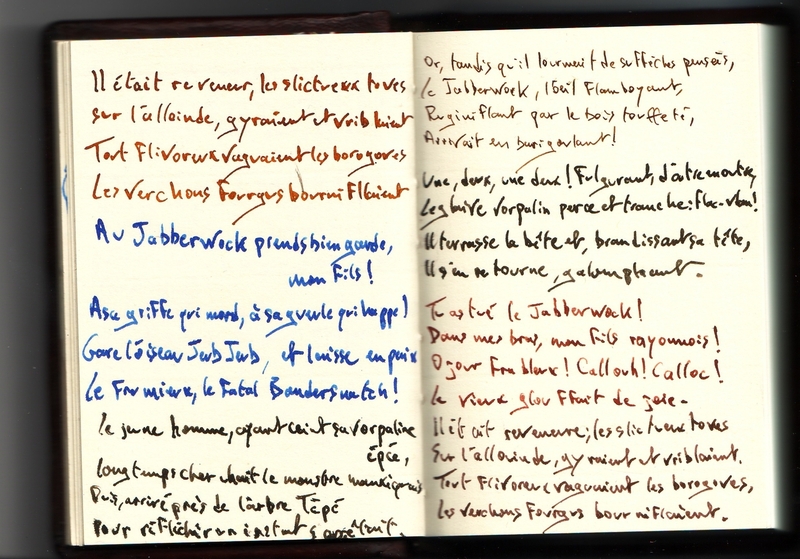 Il était reveneur, les slictueux toves
sur l'alloinde, gyraient et vriblaient
Tout flivoreux vaguaient les borogoves
Les verchons fourgus bourniflaient
Au Jabberwock prends bien garde,
mon fils!
A sa griffe qui mord, à sa gueule qui happe!
Gare l'oiseau Jub Jub, et laisse en paix
le frumieux, le fatal Bandersnatch!
Le jeune homme, ayant ceint sa vorpaline
épée,
longtemps cherchait le monstre manxiquais
Puis, arrivé près de l'arbre Tépé
Pour réfléchir un instant s'arrêtait.
Or, tandis qu'il lourmait de suffêches pensées,
le Jabberwock, l'oeil flamboyant,
Ruginiflant par le bois touffeté,
Arrivait en burigoulant!
Une, deux, une deux! Fulgurant, d'outre en outre,
Le glaive vorpalin perce et tranche: flac-vlan!
Il terrasse la bête et, brandissant sa tête,
Il s'en retourne, galomphant.
Tu as tué le Jabberwock!
Dans mes bras, mon fils rayonnois!
O jour frableux! Callouh! Calloc!
Le vieux glouffait de joie.
Il était reveneure; les slictueux toves
Sur l'alloinde, gyraient et vriblaient.
Tout flivoreux vaguaient les borogoves,
Les verchons fourgus bourniflaient.